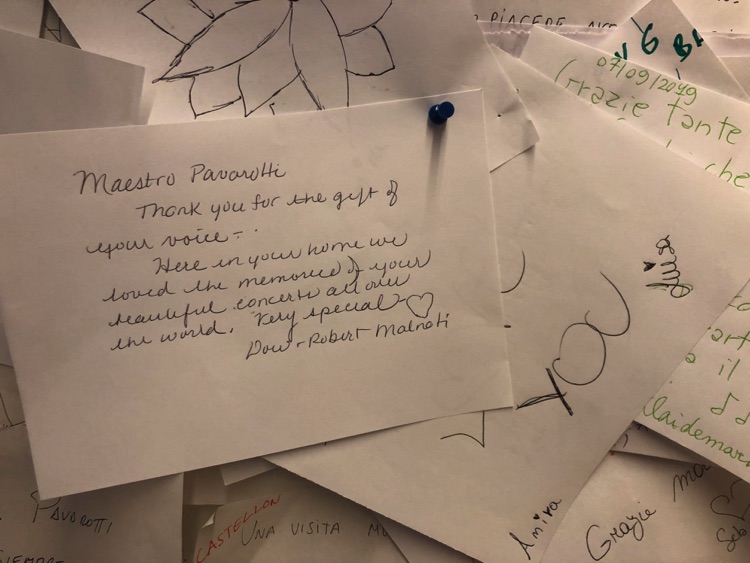 Maestro Pavarotti
Thank you for the gift of
your voice -
Here in your home we
loved the memories of your
beautiful concerts all over
the world. Very special ♡
Dow + Robert Malnati
PIACERE
G
07/09/2019
Grazie tante
che
Luisa
YOU
il
Amira
Grazie Ma
Seb
PAVAROTTI
CASTELLON
UNA VISITA